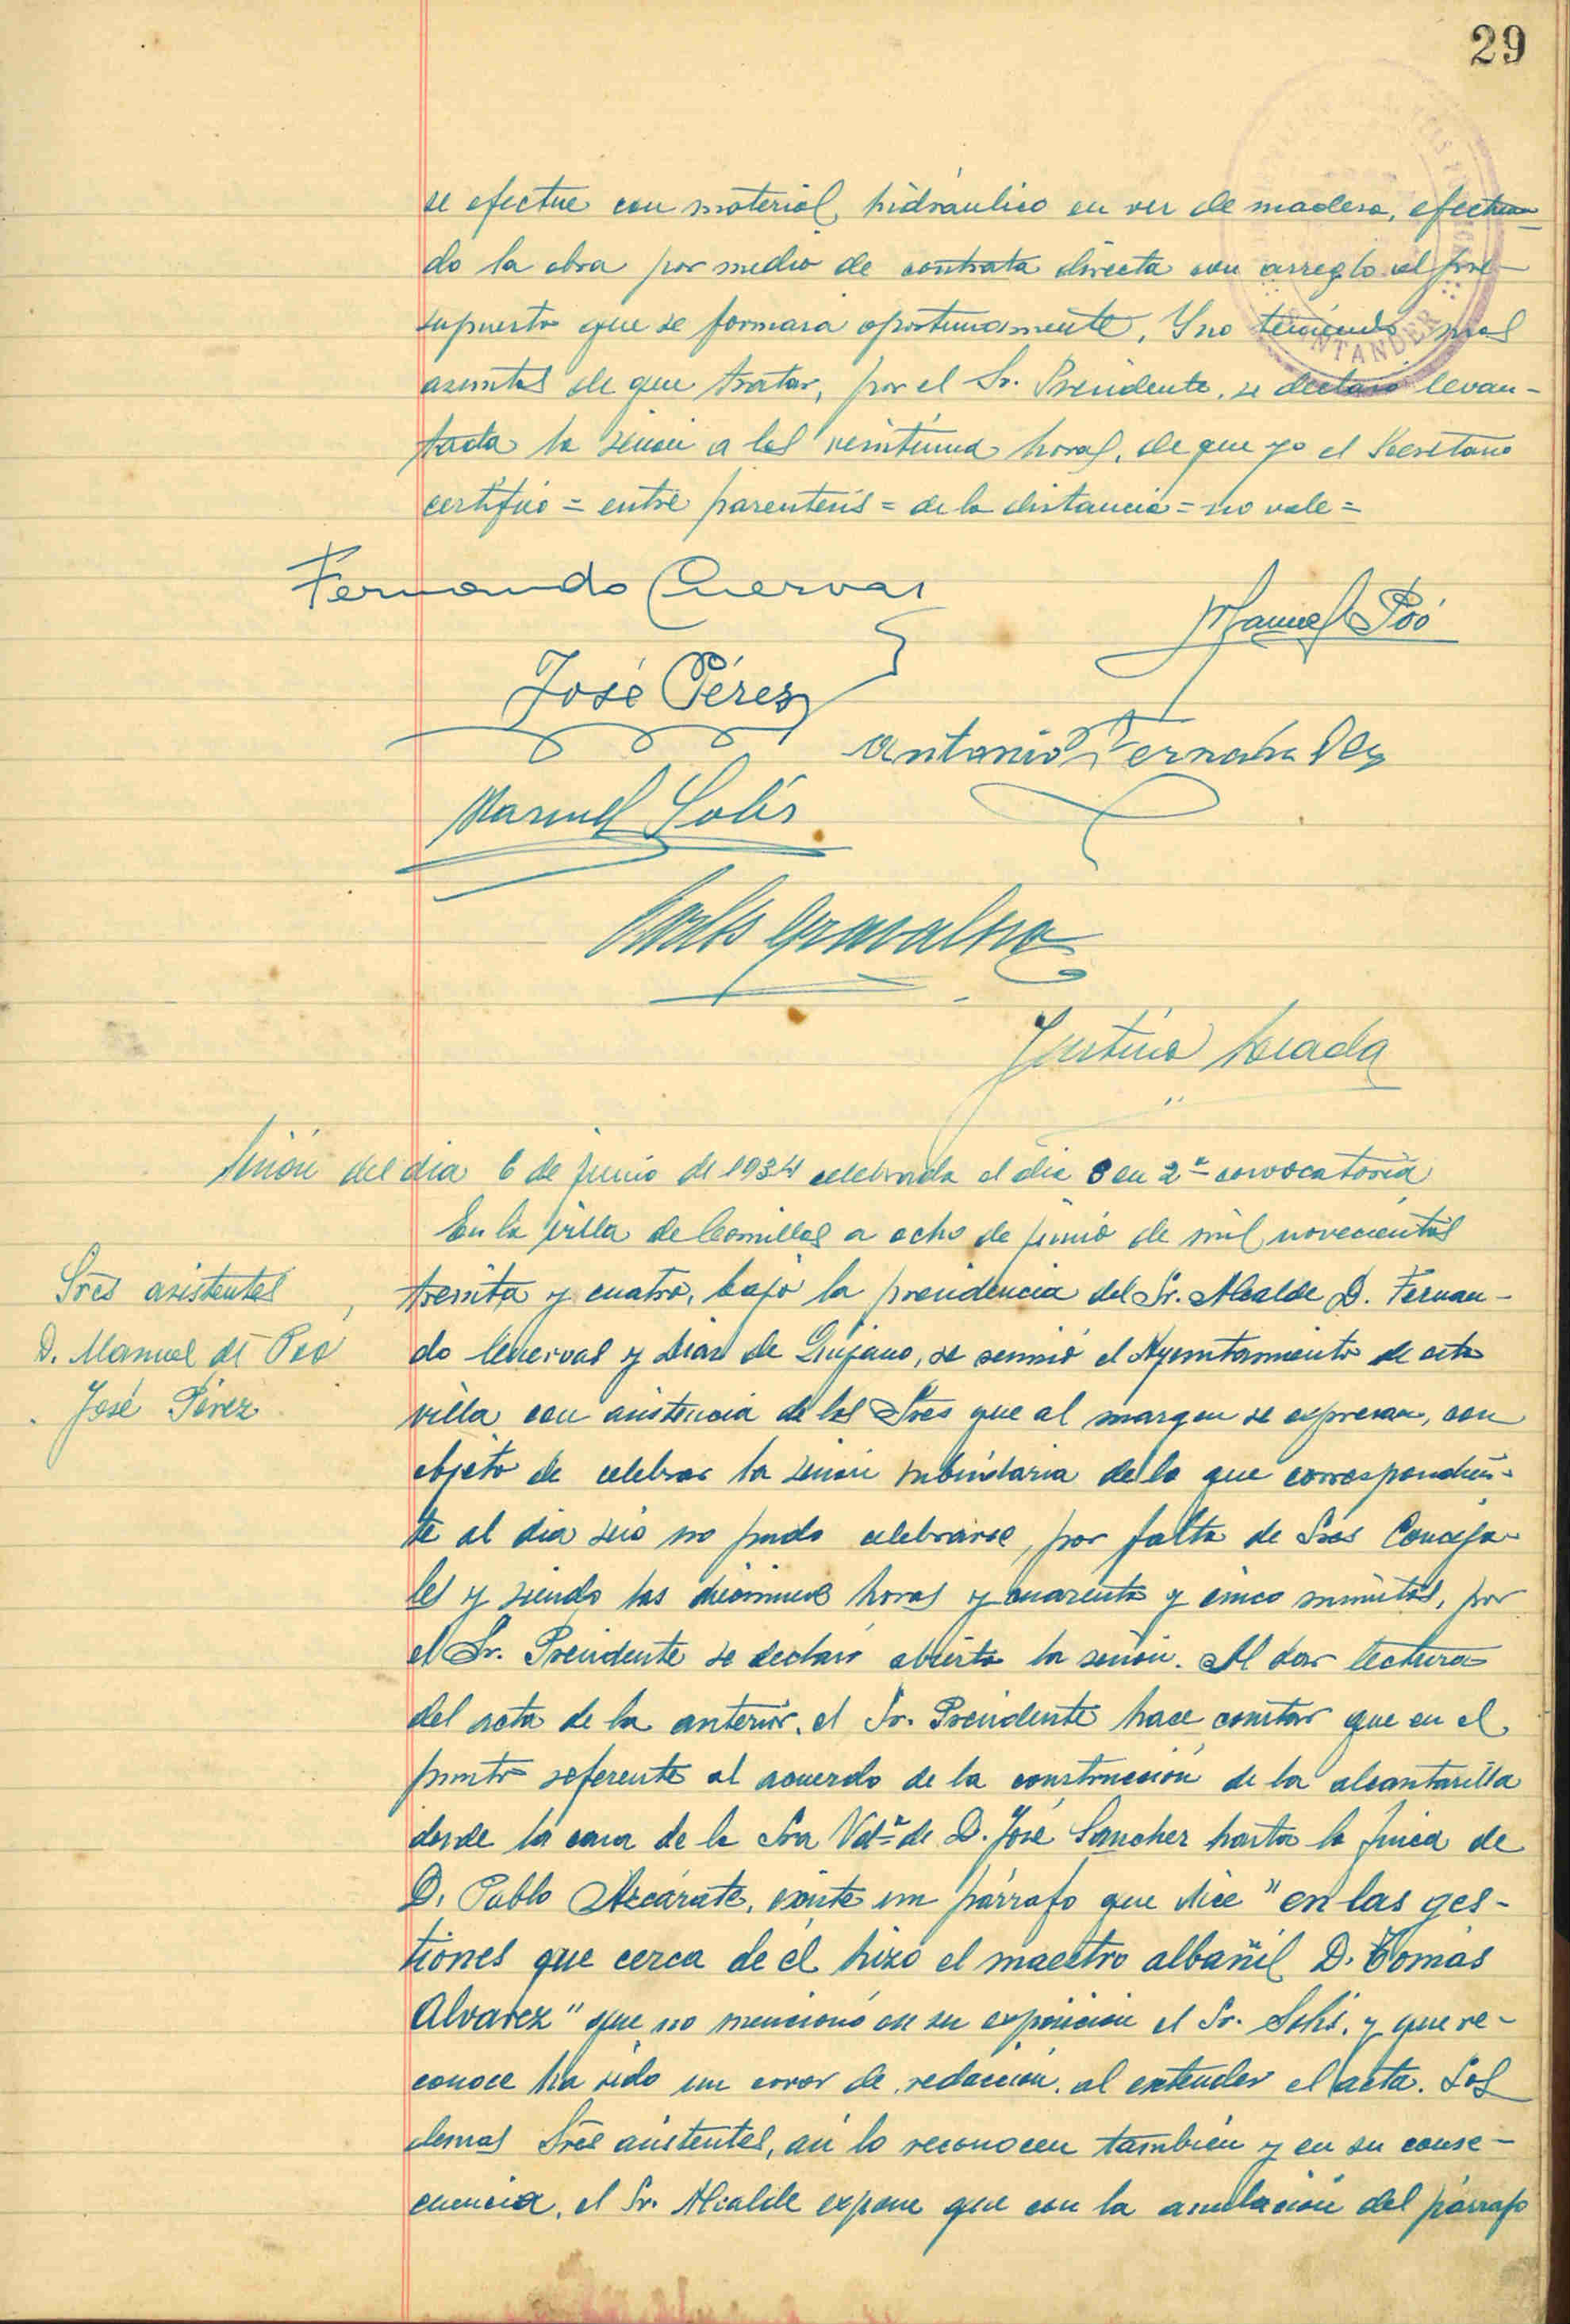 29
se efectue con material hidráulico en vez de madera, efectuan-
do la obra por medio de contrata directa con arreglo al pre-
supuesto que se formara oportunamente. Y no teniendo mas
asuntos de que tratar, por el Sr. Presidente, se declaró levan-
tada la sesion a las veintiuna horas, de que yo el Secretario
certifico = entre parentesis = de la distancia = no vale =
Fernando Cuervas
Manuel Poó
José Pérez
Antonio Fernandez
Manuel Solís
Carlos
Justino
SANTANDER
Sesión del dia 6 de junio de 1934 celebrada el dia 8 en 2ª convocatoria
En la villa de Comillas a ocho de junio de mil novecientos
Sres asistentes
treinta y cuatro, bajo la presidencia del Sr. Alcalde D. Fernan-
D. Manuel de Poó
do Cuervas y Diaz de Quijano, se reunió el Ayuntamiento de esta
José Pérez
villa con asistencia de los Sres que al margen se expresan, con
objeto de celebrar la sesion subsidiaria de la que correspondien-
te al dia seis no pudo celebrarse, por falta de Sres Conceja-
les y siendo las diecinueve horas y cuarenta y cinco minutos, por
el Sr. Presidente se declaró abierta la sesión. Al dar lectura
del acta de la anterior, el Sr. Presidente hace constar que en el
punto referente al acuerdo de la construccion de la alcantarilla
desde la casa de la Sra Vdª de D. José Sanchez hasta la finca de
D. Pablo Azcárate, existe un párrafo que dice "en las ges-
tiones que cerca de él hizo el maestro albañil D. Tomás
Alvarez" que no mencionó en su exposicion el Sr. Solis, y que re-
conoce ha sido un error de redacción, al extender el acta. Los
demas Sres asistentes, asi lo reconocen también y en su conse-
cuencia, el Sr. Alcalde expone que con la anulación del párrafo